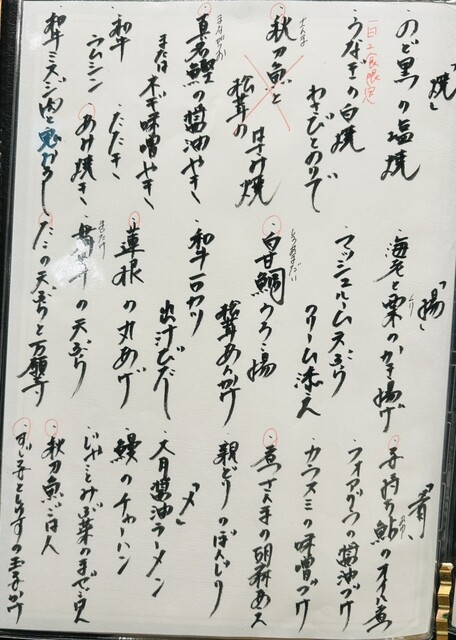 「焼」
・のど黒の塩焼
一日二食限定
・うなぎの白焼
わさびとのりで
さんま
・秋刀魚と
松茸の
はさみ焼
まながつお
・真名鰹の醤油やき
または ネギ味噌やき
・和牛
ラムシン
たたき
・あみ焼き
・和牛ミスジ肉と
「揚」
・海老と栗のかき揚げ
くり
・マッシュルーム天ぷら
クリーム添え
しろあまだい
・白甘鯛うろこ揚
松茸あんかけ
・和牛一口カツ
出汁びたし
・蓮根の丸あげ
まいたけ
・舞茸の天ぷら
の天ぷらと万願寺
「肴」
・子持ち鮎のオイル煮
あゆ
・フォアグラの醤油づけ
・カラスミの味噌づけ
・煮さんまの胡麻あえ
・親どりのぼんじり
「〆」
・大月醤油ラーメン
・鰻のチャーハン
・じゃことみぶ菜のまぜごはん
・秋刀魚ごはん
・すじ子とうずらの玉子かけ